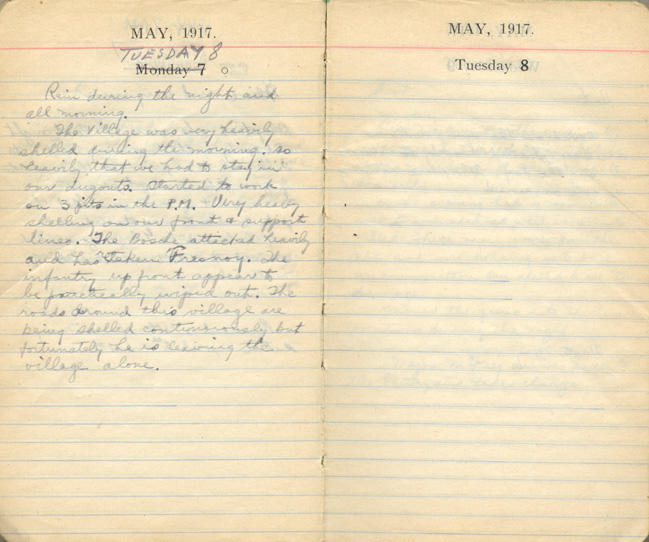 MAY, 1917.
TUESDAY 8
Monday 7
Rain during the night and
all morning.
The village was very heavily
shelled during the morning. so
heavily that we had to stay in
our dugouts. Started to work
on 3 pits in the P.M. Very heavy
shelling on our front & support
lines. The Bosche attacked heavily
and has taken Fresnoy. The
infantry up front appear to
be practically wiped out. The
roads around this village are
being shelled continuously but
fortunately he is leaving the
village alone.
MAY, 1917.
Tuesday 8